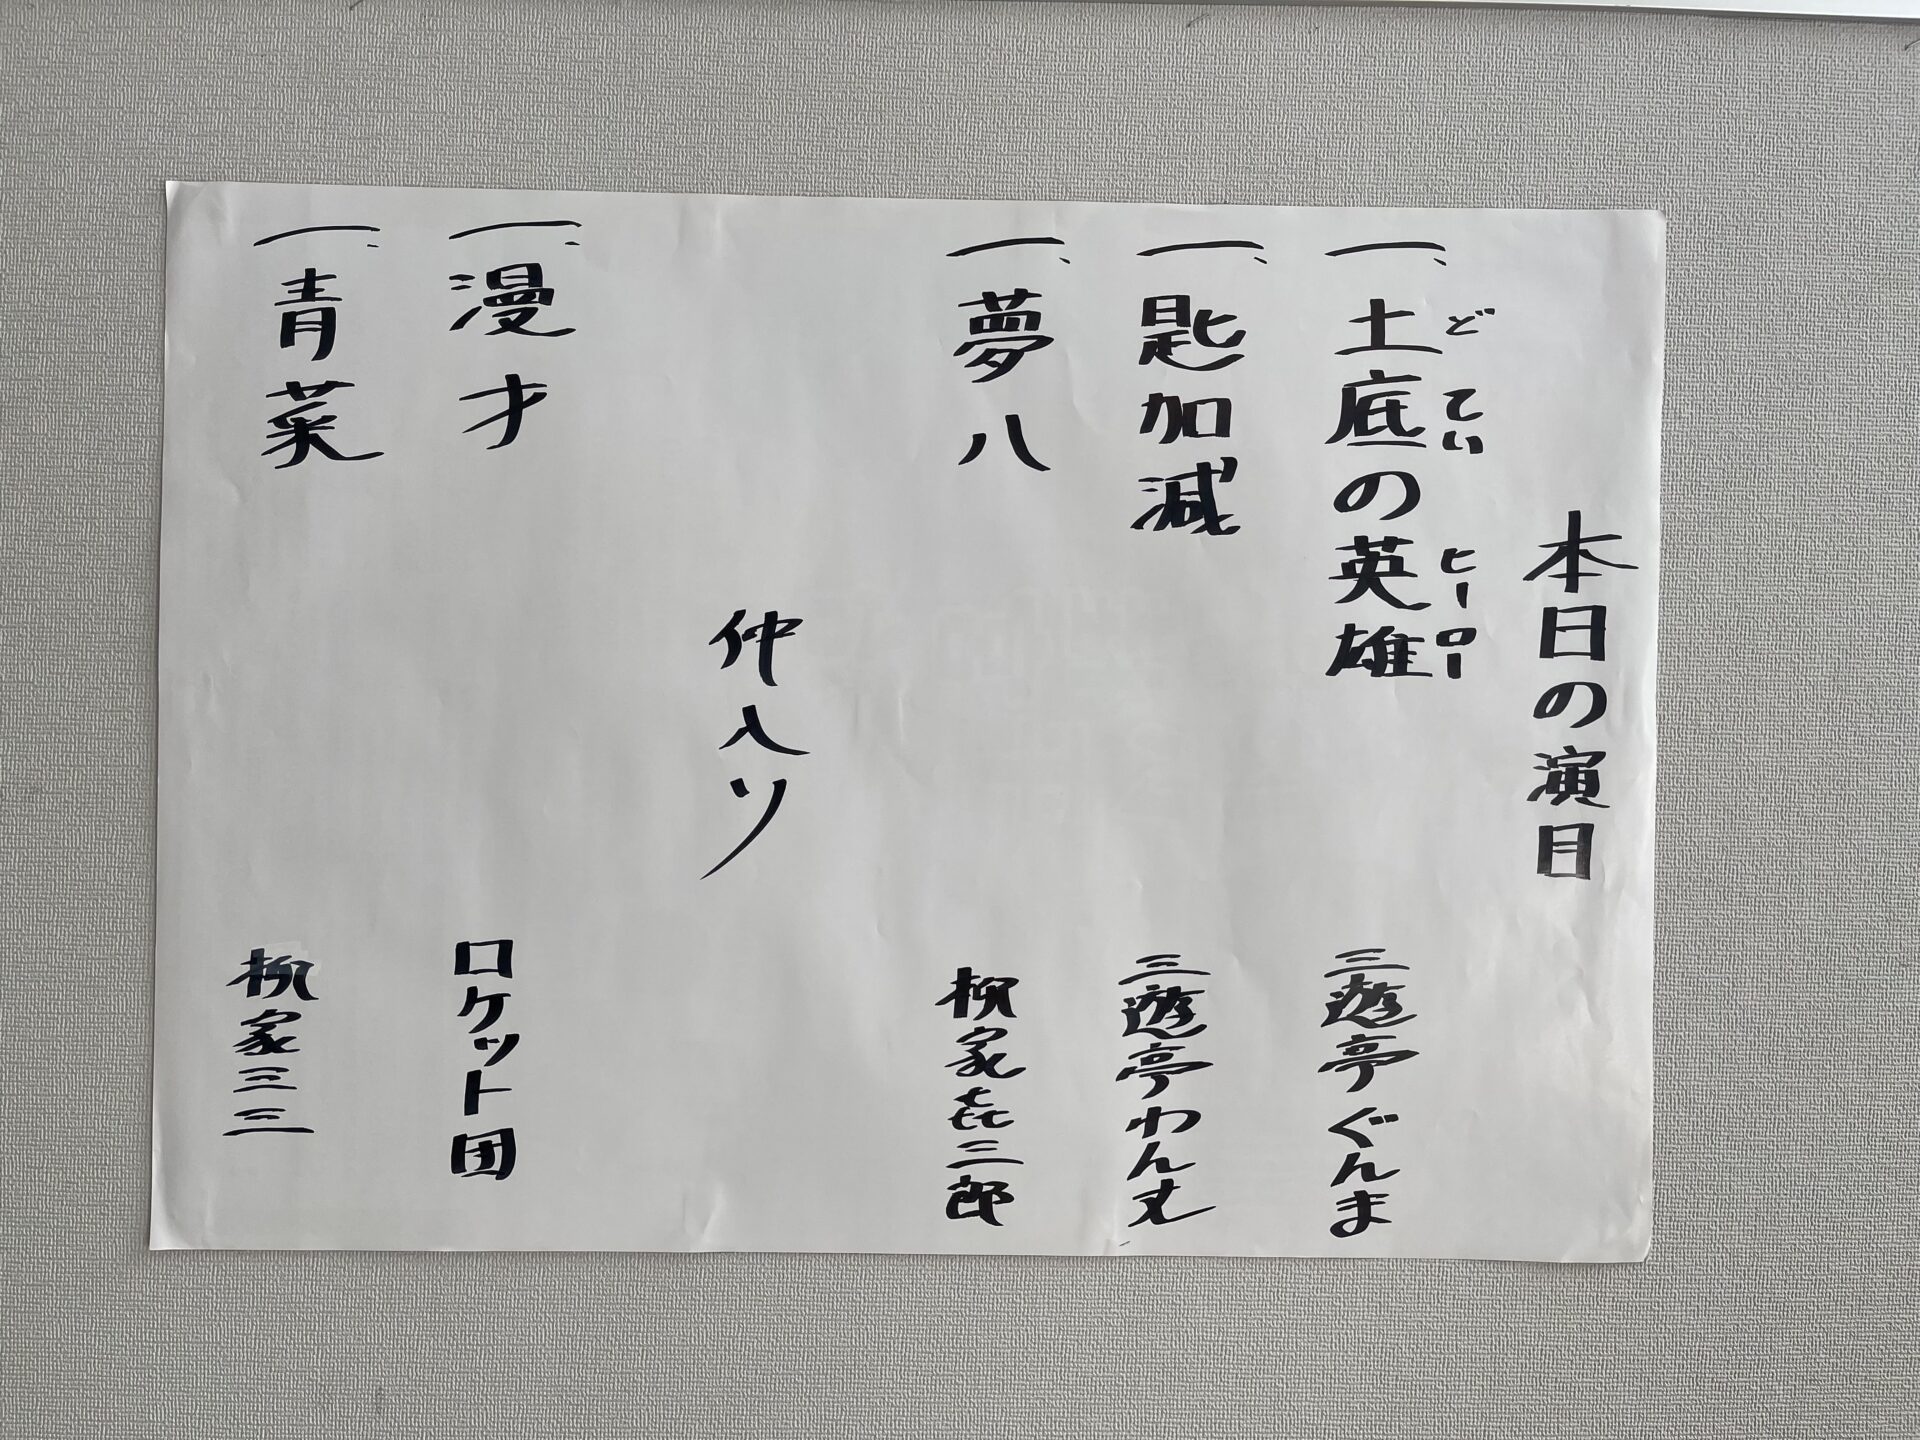 本日の演目
一、土底の英雄 三遊亭ぐんま
どてい ヒーロー
一、匙加減 三遊亭わん丈
一、夢八 柳家㐂三郎
仲入り
一、漫才 ロケット団
一、青菜 柳家三三